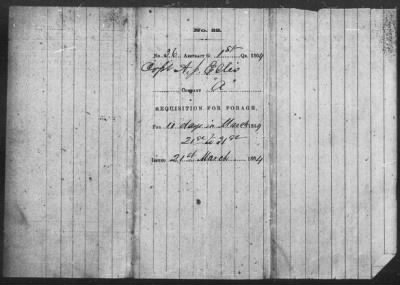 No. 32.
No. 26, Abstract G. 1st Qr. 1864
Capt A. J. Ellis
Company "A"
REQUISITION FOR FORAGE,
For 11 days in March
21st to 31st
Issued 21st March 1864